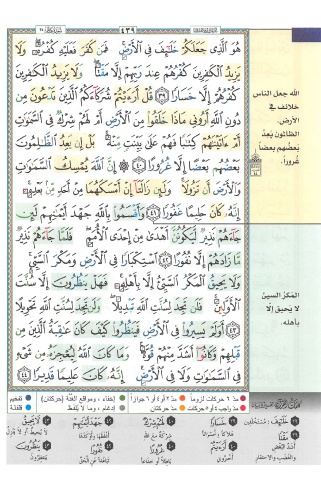 ٤٣٩
هُوَ الَّذِي جَعَلَكُمْ خَلَائِفَ فِي الْأَرْضِ فَمَن كَفَرَ فَعَلَيْهِ كُفْرُهُ وَلَا
يَزِيدُ الْكَافِرِينَ كُفْرُهُمْ عِندَ رَبِّهِمْ إِلَّا مَقْتًا وَلَا يَزِيدُ الْكَافِرِينَ
كُفْرُهُمْ إِلَّا خَسَارًا ٣٩ قُلْ أَرَأَيْتُمْ شُرَكَاءَكُمُ الَّذِينَ تَدْعُونَ مِن
دُونِ اللَّهِ أَرُونِي مَاذَا خَلَقُوا مِنَ الْأَرْضِ أَمْ لَهُمْ شِرْكٌ فِي السَّمَاوَاتِ
أَمْ آتَيْنَاهُمْ كِتَابًا فَهُمْ عَلَى بَيِّنَتٍ مِّنْهُ بَلْ إِن يَعِدُ الظَّالِمُونَ
بَعْضُهُم بَعْضًا إِلَّا غُرُورًا ٤٠ إِنَّ اللَّهَ يُمْسِكُ السَّمَاوَاتِ
وَالْأَرْضَ أَن تَزُولَا وَلَئِن زَالَتَا إِنْ أَمْسَكَهُمَا مِنْ أَحَدٍ مِّن بَعْدِهِ
إِنَّهُ كَانَ حَلِيمًا غَفُورًا ٤١ وَأَقْسَمُوا بِاللَّهِ جَهْدَ أَيْمَانِهِمْ لَئِن
جَاءَهُمْ نَذِيرٌ لَّيَكُونُنَّ أَهْدَى مِنْ إِحْدَى الْأُمَمِ فَلَمَّا جَاءَهُمْ نَذِيرٌ
مَّا زَادَهُمْ إِلَّا نُفُورًا ٤٢ اسْتِكْبَارًا فِي الْأَرْضِ وَمَكْرَ السَّيِّئِ
وَلَا يَحِيقُ الْمَكْرُ السَّيِّئُ إِلَّا بِأَهْلِهِ فَهَلْ يَنظُرُونَ إِلَّا سُنَّتَ
الْأَوَّلِينَ فَلَن تَجِدَ لِسُنَّتِ اللَّهِ تَبْدِيلًا وَلَن تَجِدَ لِسُنَّتِ اللَّهِ تَحْوِيلًا
٤٣ أَوَلَمْ يَسِيرُوا فِي الْأَرْضِ فَيَنظُرُوا كَيْفَ كَانَ عَاقِبَةُ الَّذِينَ مِن
قَبْلِهِمْ وَكَانُوا أَشَدَّ مِنْهُمْ قُوَّةً وَمَا كَانَ اللَّهُ لِيُعْجِزَهُ مِن شَيْءٍ
فِي السَّمَاوَاتِ وَلَا فِي الْأَرْضِ إِنَّهُ كَانَ عَلِيمًا قَدِيرًا ٤٤
الله جعل الناس
خلائف في
الأرض.
الظالمون يَعِدُ
بَعضُهم بعضاً
غُروراً.
المَكرُ السيئ
لا يَحيق إلّا
بأهله.
مدّ ٦ حركات لزوماً
مدّ ٢ أو ٤ أو ٦ جوازاً
إخفاء، ومواقع الغُنَّة (حركتان)
تفخيم
مدّ واجب ٤ أو ٥ حركات
مدّ حركتان
إدغام، وما لا يُلفظ
قلقلة